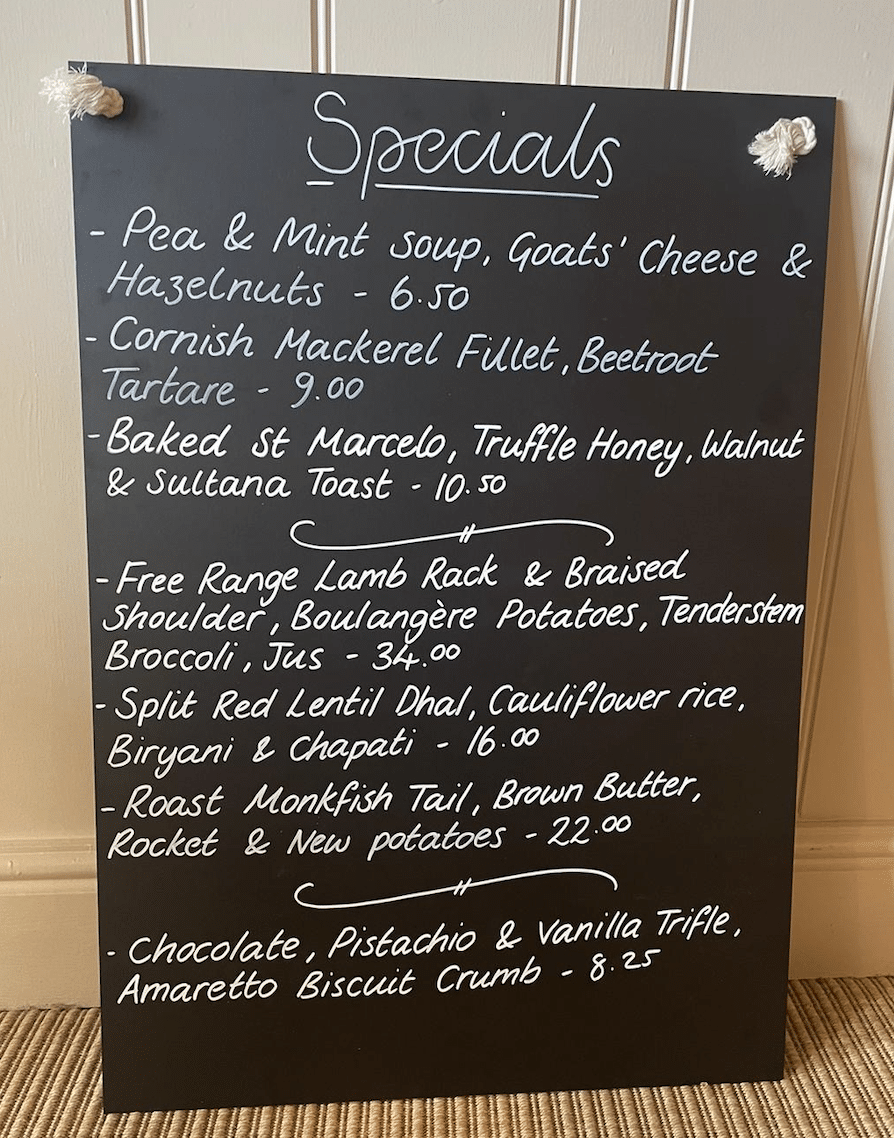 Specials
- Pea & Mint soup, Goats' Cheese &
Hazelnuts - 6.50
- Cornish Mackerel Fillet, Beetroot
Tartare - 9.00
- Baked St Marcelo, Truffle Honey, Walnut
& Sultana Toast - 10.50
- Free Range Lamb Rack & Braised
Shoulder, Boulangère Potatoes, Tenderstem
Broccoli, Jus - 34.00
- Split Red Lentil Dhal, Cauliflower rice,
Biryani & Chapati - 16.00
- Roast Monkfish Tail, Brown Butter,
Rocket & New potatoes - 22.00
- Chocolate, Pistachio & Vanilla Trifle,
Amaretto Biscuit Crumb - 8.25